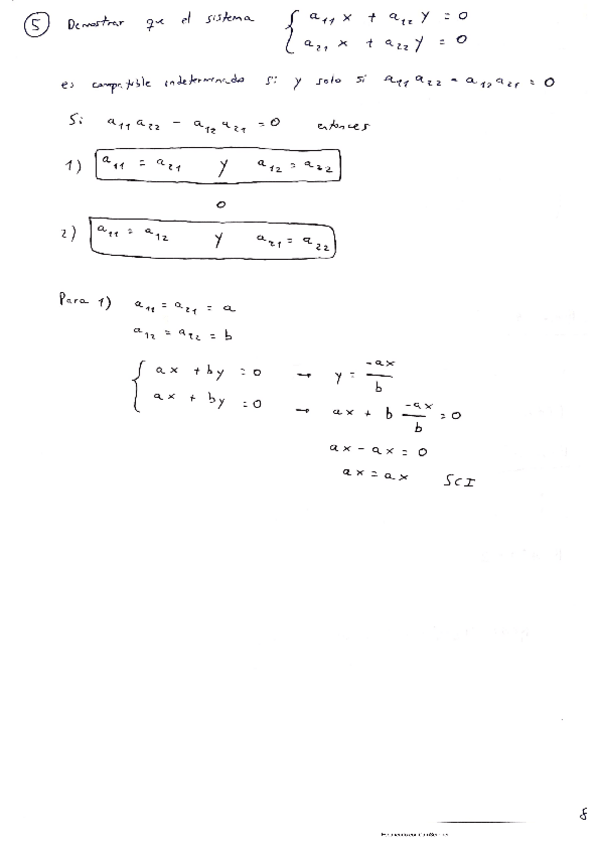 5 Demostrar que el sistema { a11 x + a12 y = 0
a21 x + a22 y = 0
es compatible indeterminado si y solo si a11 a22 - a12 a21 = 0
Si a11 a22 - a12 a21 = 0 entonces
1) a11 = a21 y a12 = a22
o
2) a11 = a12 y a21 = a22
Para 1) a11 = a21 = a
a12 = a22 = b
{ ax + by = 0 → y = -ax/b
ax + by = 0 → ax + b -ax/b = 0
ax - ax = 0
ax = ax SCI
8